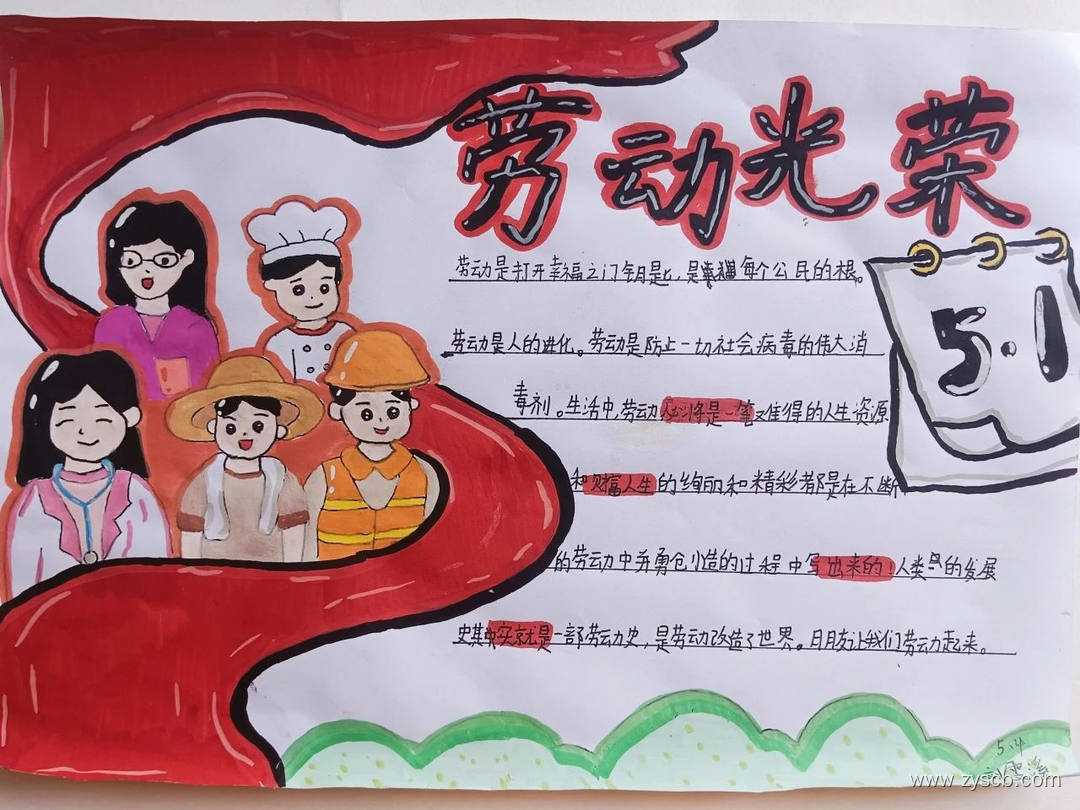 劳动光荣
5.1
劳动是打开幸福之门钥匙，是每个公民的根。
劳动是人的进化。劳动是防止一切社会病毒的伟大消
毒剂。生活中，劳动必将是一笔又难得的人生资源
和财富人生的绚丽和精彩都是在不断
的劳动中并勇创造的过程中写出来的！人类的发展
史其中实就是一部劳动史，是劳动改造了世界。让我们劳动起来。
5.4
www.zyscb.com